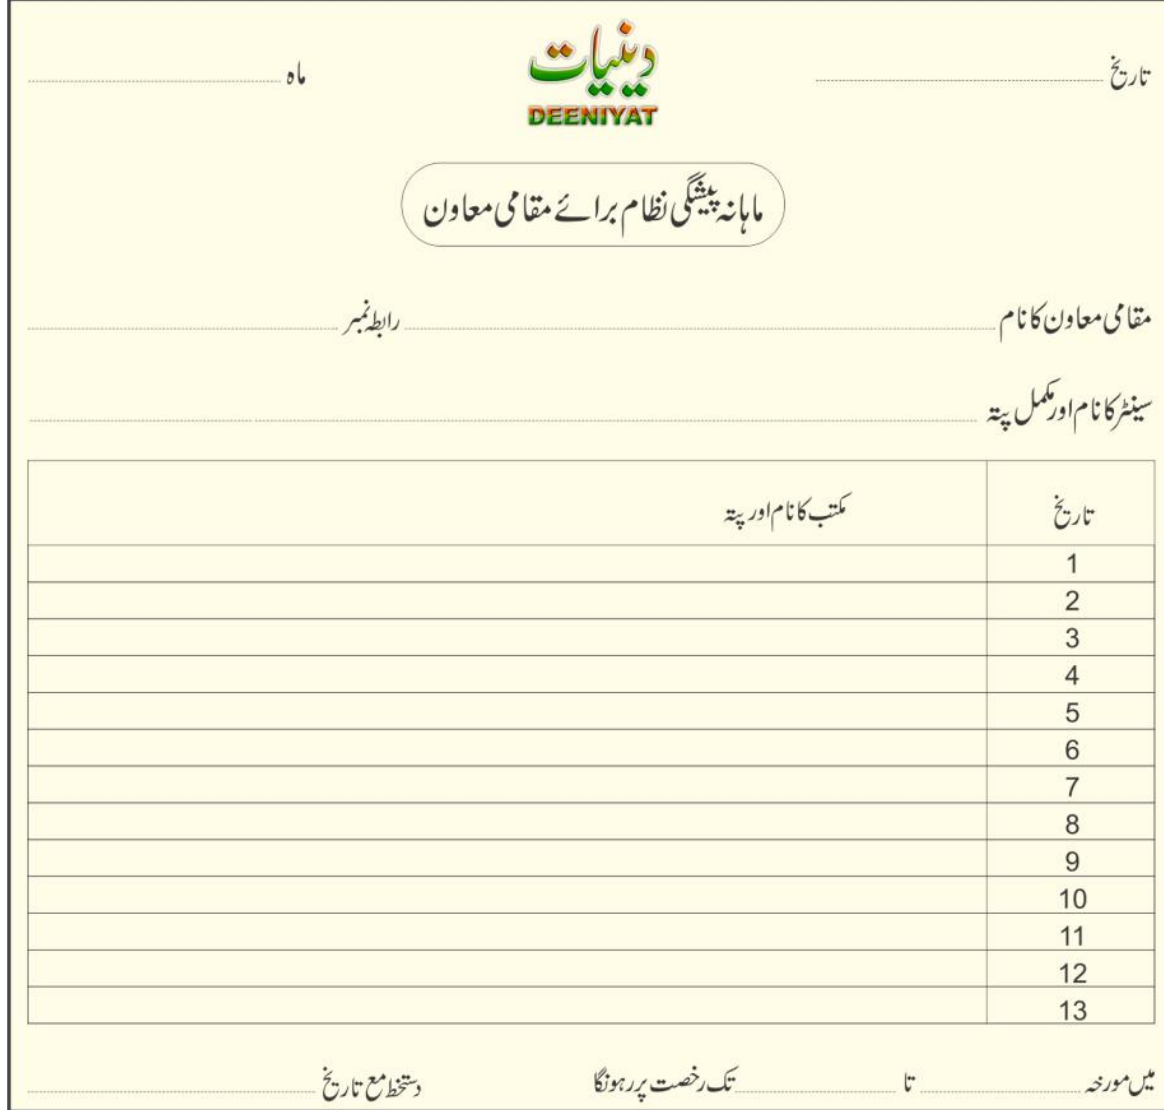 تاریخ ........ دینیات ماہ ........
DEENIYAT
ماہانہ پیشگی نظام برائے مقامی معاون
مقامی معاون کا نام ........ رابطہ نمبر ........
سینٹر کا نام اور مکمل پتہ ........
تاریخ مکتب کا نام اور پتہ
1
2
3
4
5
6
7
8
9
10
11
12
13
میں مورخہ ........ تا ........ تک رخصت پر رہونگا دستخط مع تاریخ ........